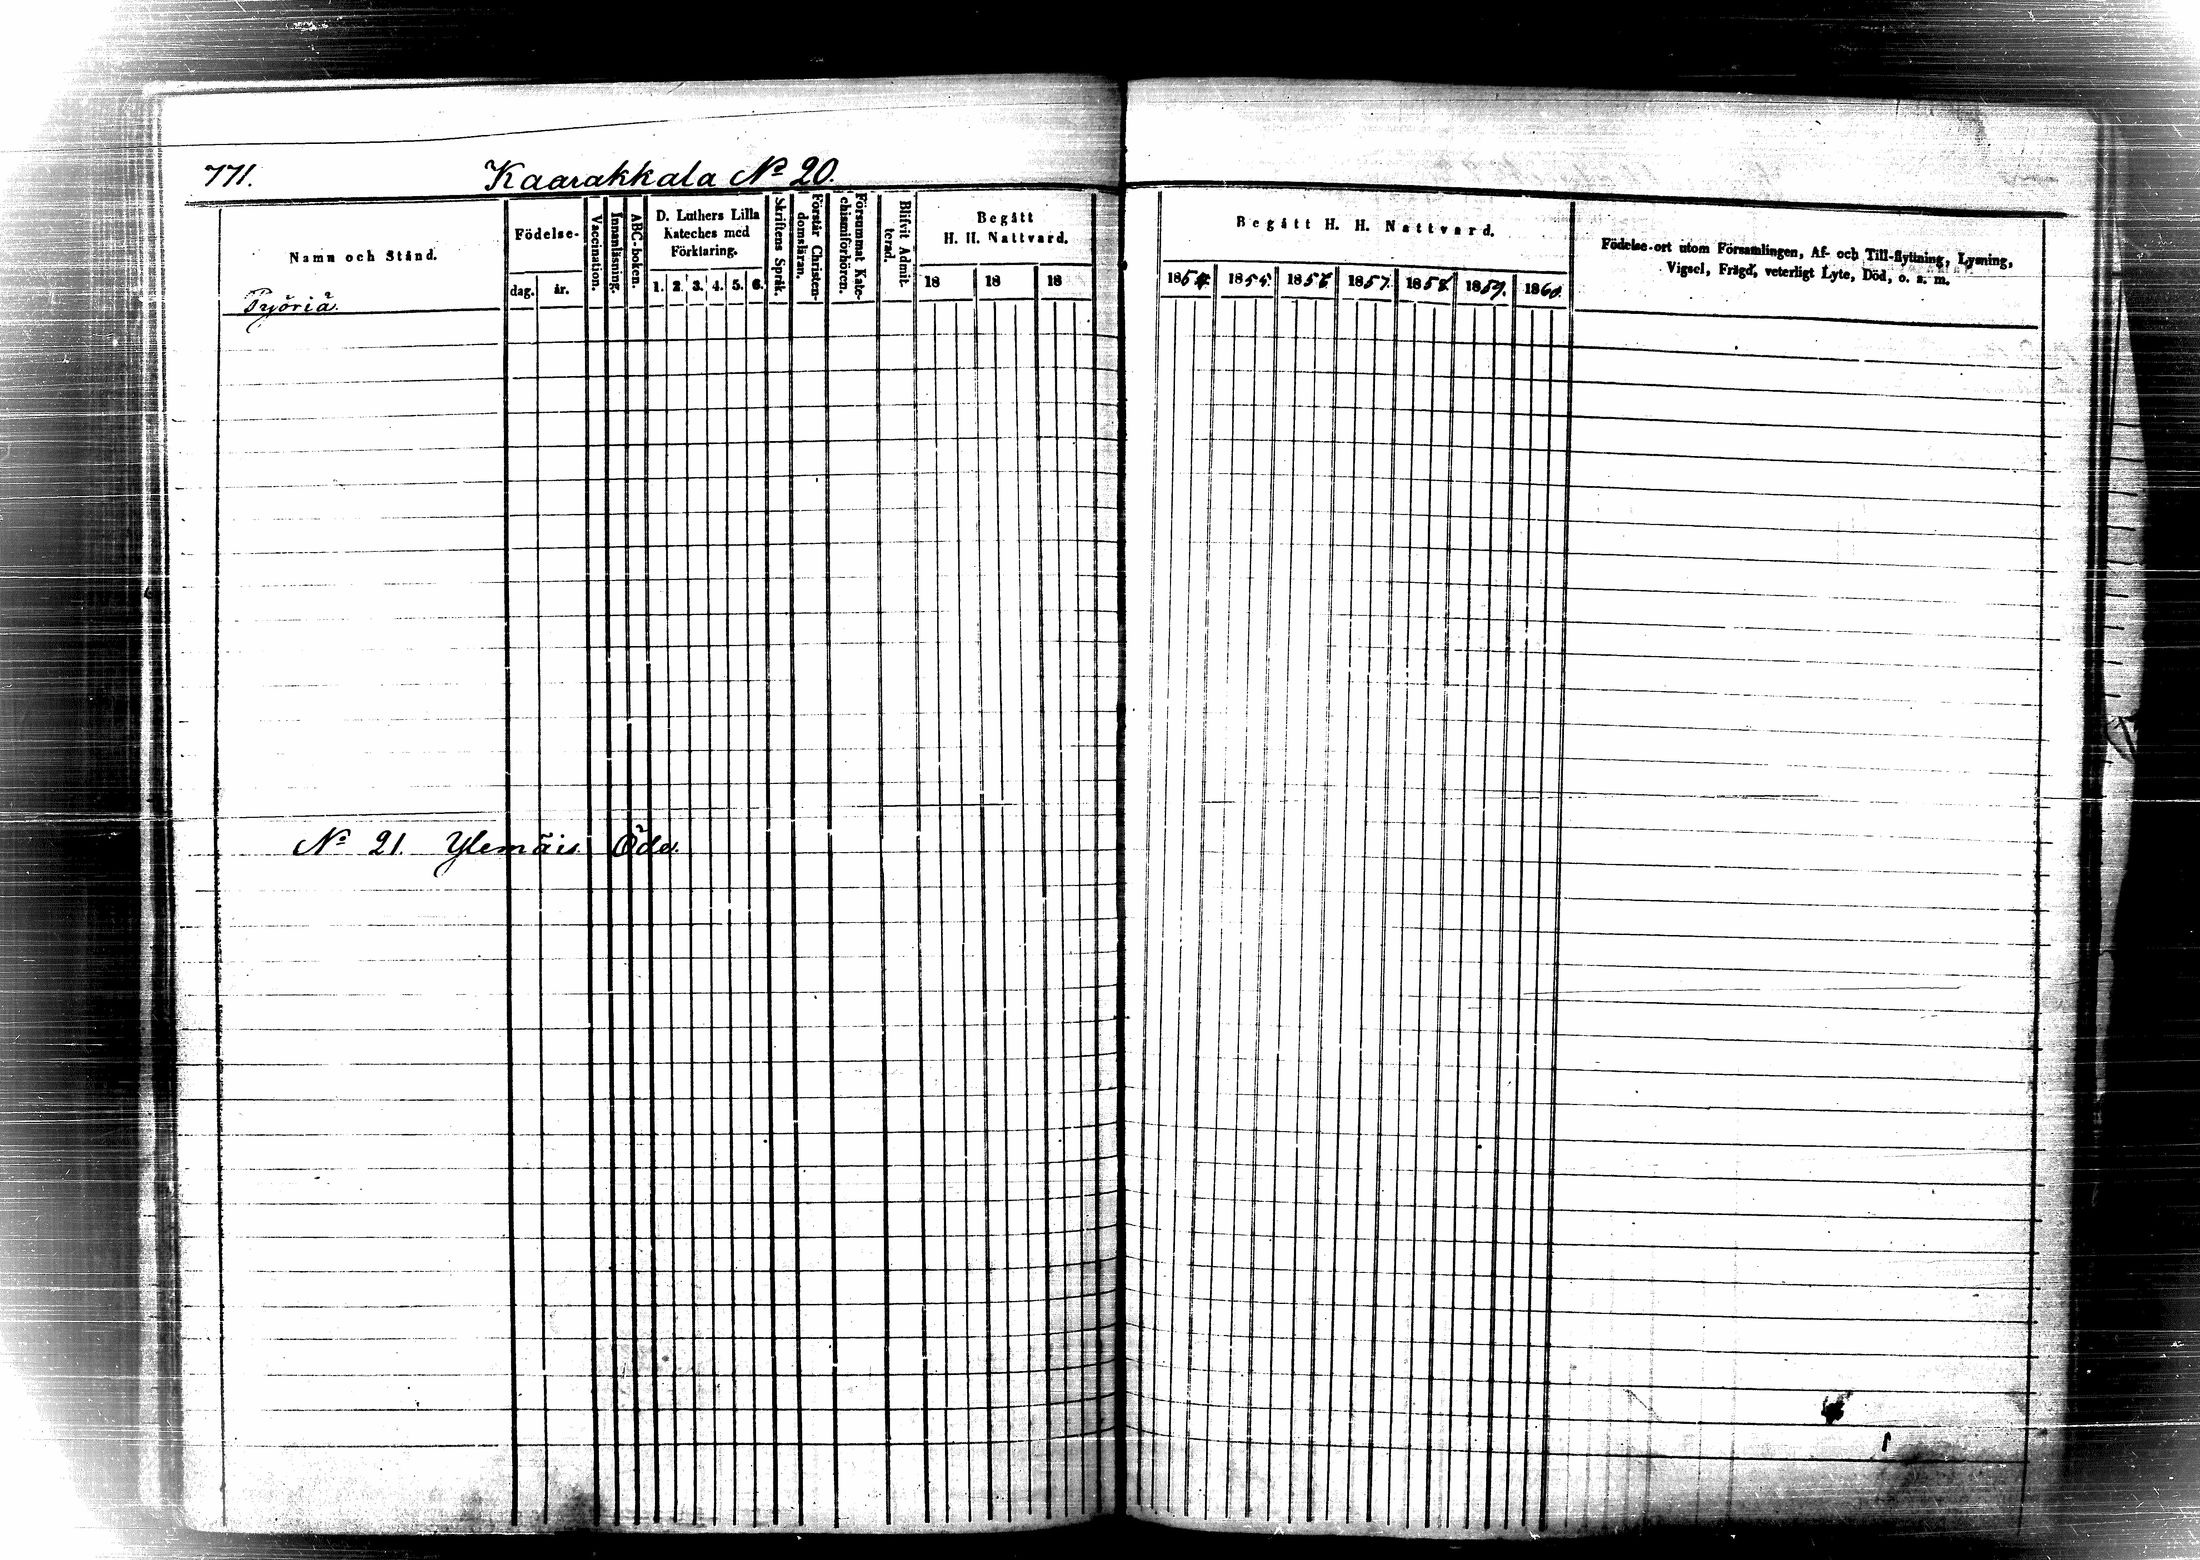 771. Kaarakkala No 20.
Namn och Stånd.
Födelse-
dag. år.
Vaccination.
Innanläsning.
ABC-boken.
D. Luthers Lilla
Kateches med
Förklaring.
1. 2. 3. 4. 5. 6.
Skriftens Språk.
Förstår Christen-
domsläran.
Försummat Kate-
chismiförhören.
Blifvit Admit-
terad.
Begått
H. H. Nattvard.
18 18 18
Begått H. H. Nattvard.
1854. 1855. 1856 1857. 1858. 1859. 1860.
Födelse-ort utom Församlingen, Af- och Till-flyttning, Lysning,
Vigsel, Frägd, veterligt Lyte, Död, o. s. m.
Pyöriä.
No 21. Ylemäis. Öde.